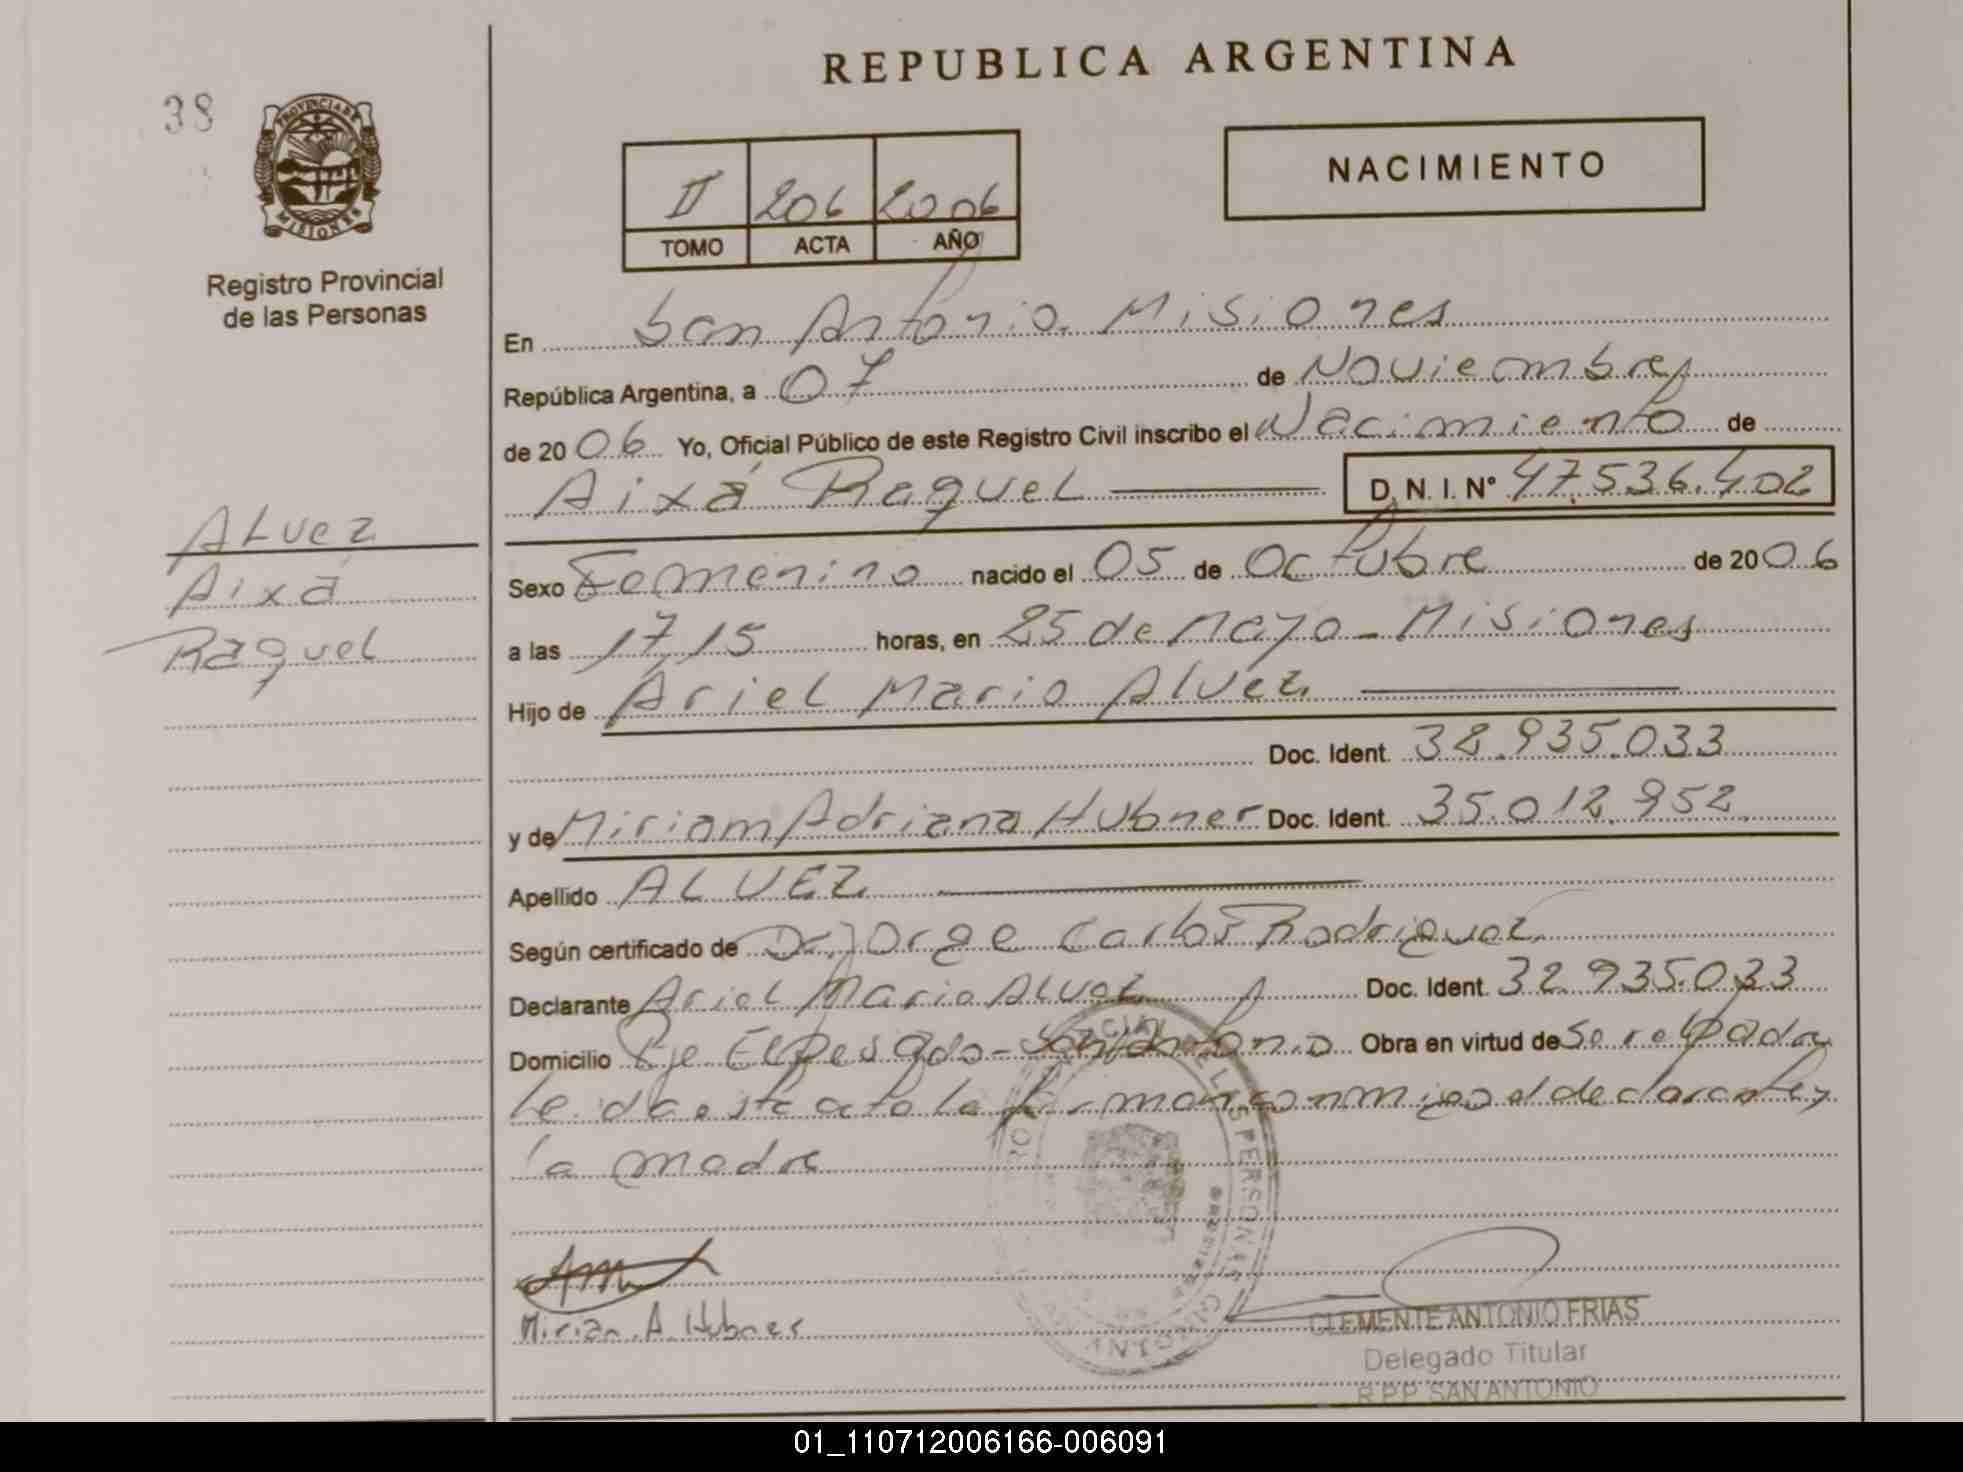 REPUBLICA ARGENTINA
38
PROVINCIA DE
MISIONES
Registro Provincial
de las Personas
NACIMIENTO
II 206 2006
TOMO ACTA AÑO
En San Antonio. Misiones
República Argentina, a 07 de Noviembre
de 2006 Yo, Oficial Público de este Registro Civil inscribo el Nacimiento de
Aixá Raquel D. N. I. Nº 47.536.402
ALvez
Aixá
Raquel
Sexo Femenino nacido el 05 de Octubre de 2006
a las 17,15 horas, en 25 de Mayo - Misiones
Hijo de Ariel Mario Alvez
Doc. Ident. 32.935.033
y de Miriam Adriana Hubner Doc. Ident. 35.012.952
Apellido ALVEZ
Según certificado de Dr. Jorge Carlos Rodriguez
Declarante Ariel Mario Alvez Doc. Ident. 32.935.033
Domicilio Pje El Pesado - San Antonio Obra en virtud de Ser el padre
Leida esta acta la firman conmigo el declarante y
la madre
Mirian A. Hubner
CLEMENTE ANTONIO FRIAS
Delegado Titular
R.P.P. SAN ANTONIO
01_110712006166-006091